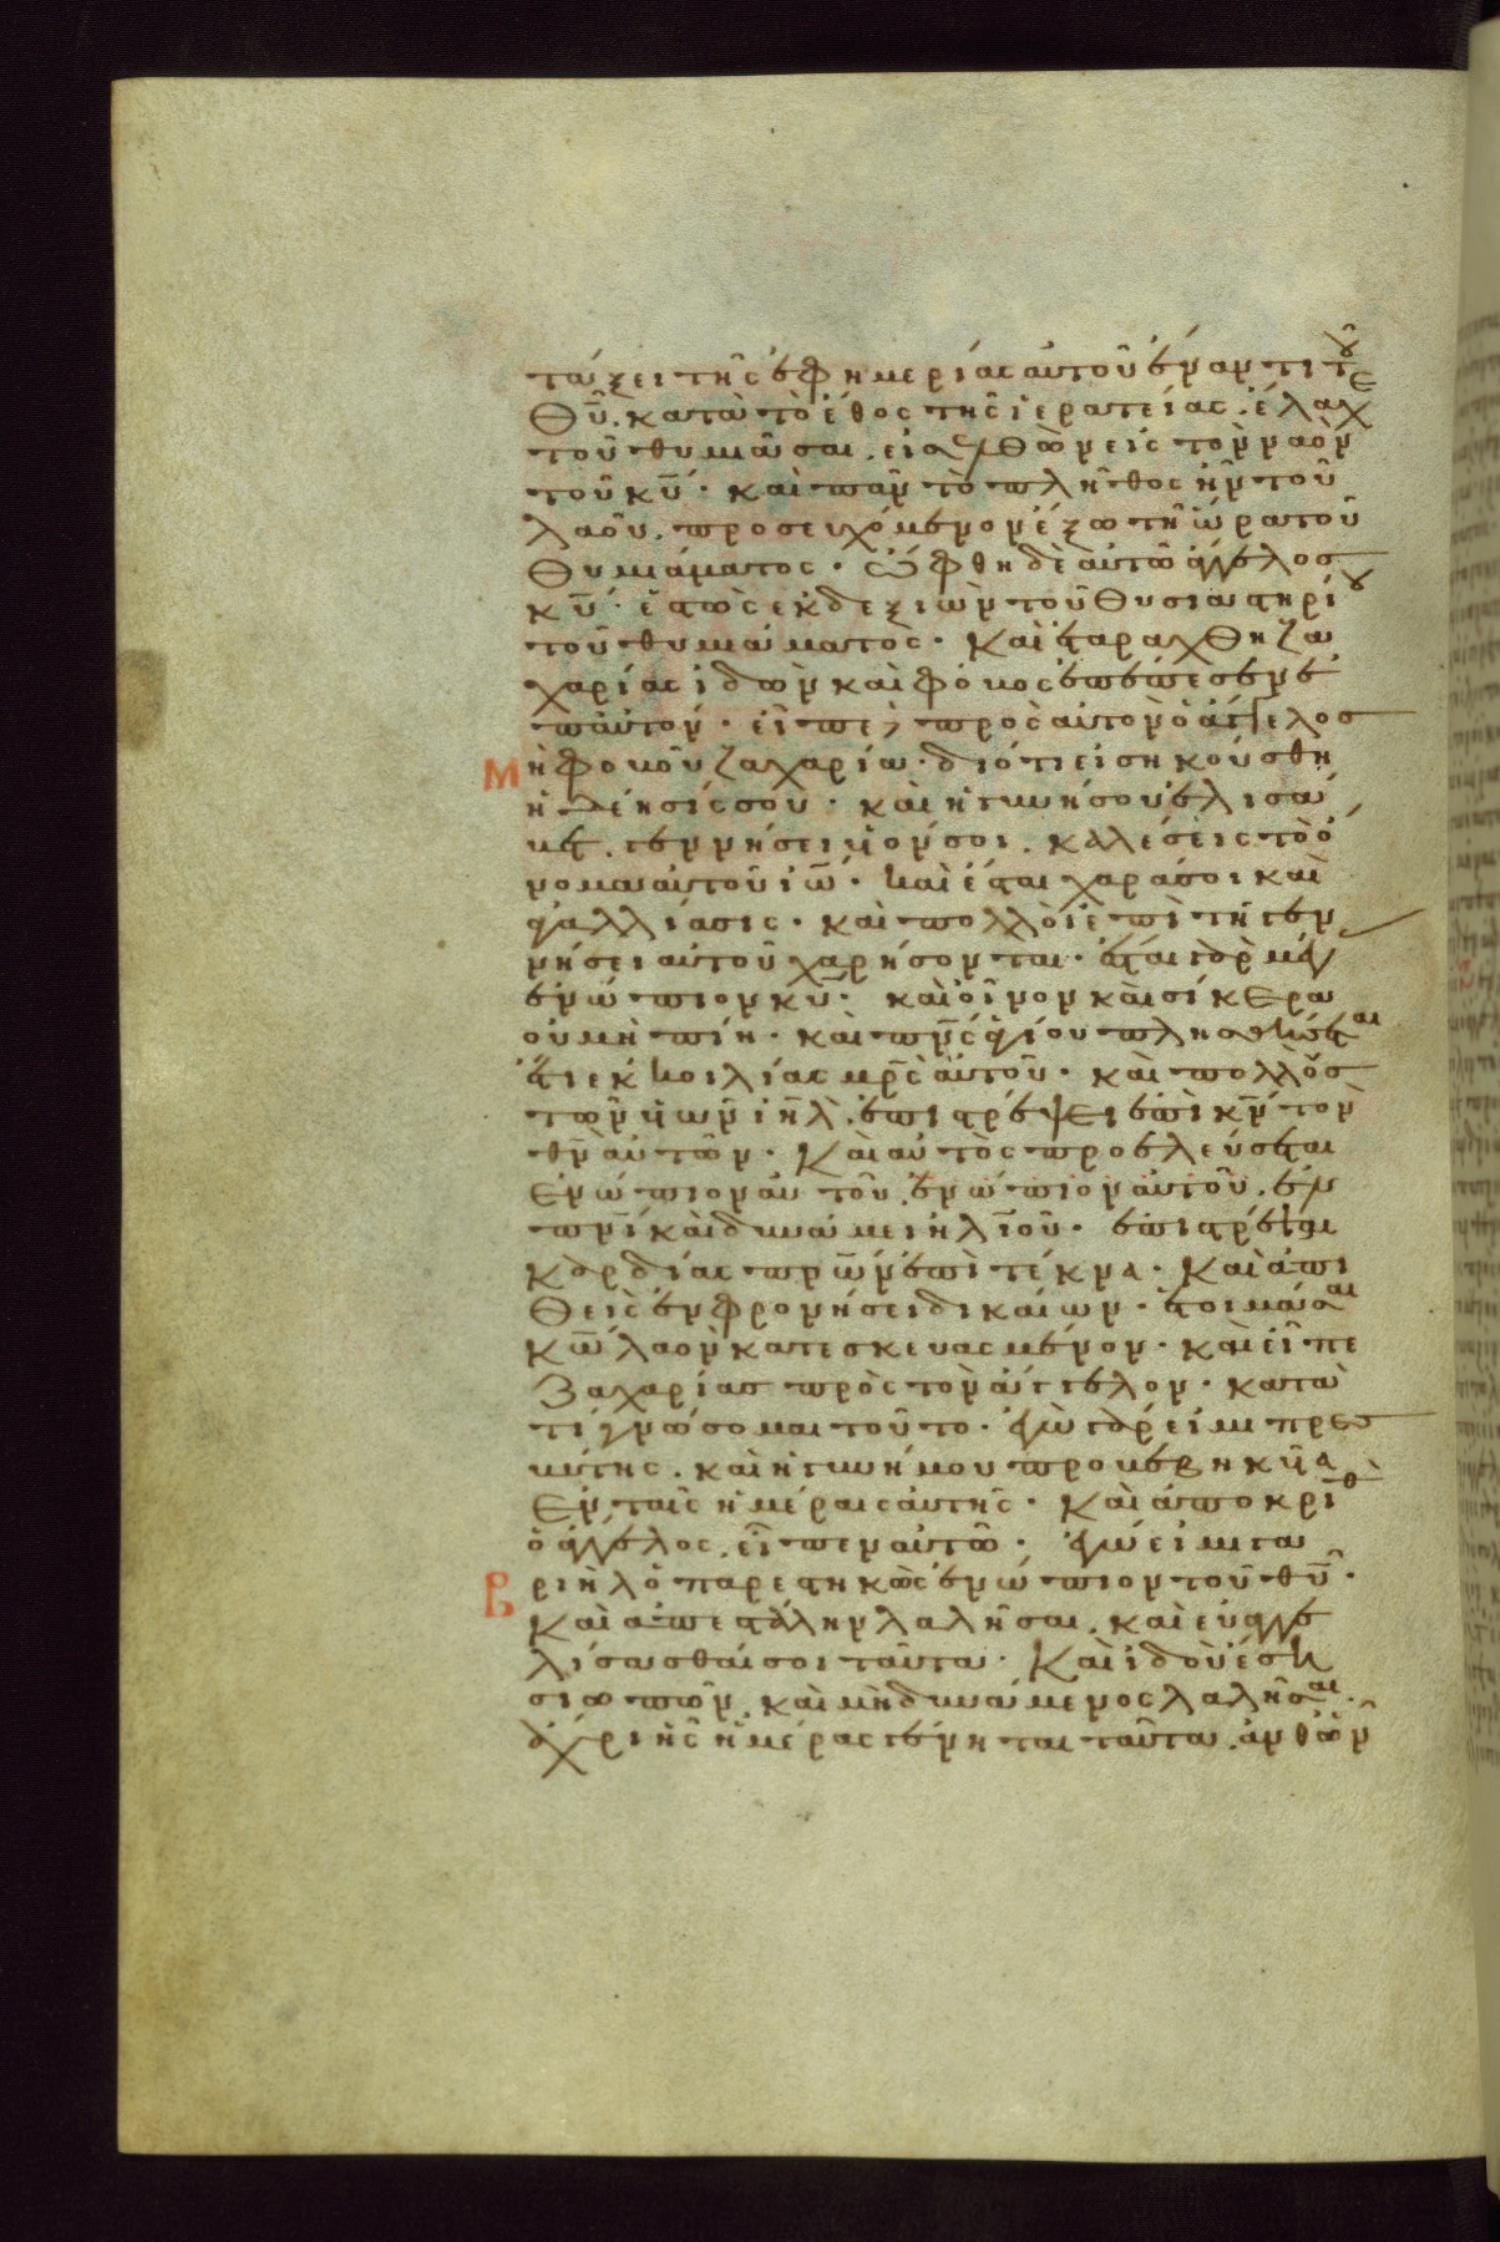 τάξει τῆς ἐφημερίας αὐτοῦ ἐναντι τοῦ
θῦ. κατὰ τὸ ἔθος τῆς ἱερατείας. ἔλαχε
τοῦ θυμιᾶσαι. εἰσελθὼν εἰς τὸν ναὸν
τοῦ κῦ· καὶ πᾶν τὸ πλῆθος ἦν τοῦ
λαοῦ. προσευχόμενον ἔξω τῆ ὥρα τοῦ
θυμιάματος· ὤφθη δὲ αὐτῶ ἄγγελος
κῦ· ἑστὼς ἐκ δεξιῶν τοῦ θυσιαστηρίου
τοῦ θυμιάματος· Καὶ ἐταράχθη ζα
χαρίας ἰδὼν καὶ φόβος ἐπέπεσεν ἐ
π αὐτον· εἶπε, πρὸς αὐτὸν ὁ ἄγγελος
Μὴ φοβοῦ ζαχαρία· διότι εἰσηκούσθη
ἡ δέησίς σου· καὶ ἡ γυνή σου ἐλισά
βετ. γεννήσει υἱον σοι. καλέσεις τὸ ὄ
νομα αὐτοῦ ἰω· καὶ ἔσται χαρά σοι καὶ
ἀγαλλίασις· καὶ πολλοὶ ἐπὶ τῆ γεν
νήσει αὐτοῦ χαρήσονται· ἔσται γὰρ μέγας
ἐνώπιον κῦ· καὶ οἶνον καὶ σίκερα
οὐ μὴ πίη· καὶ πνς ἁγίου πλησθήσεται
ἔτι ἐκ κοιλίας μρς αὐτοῦ· καὶ πολλοὺς
τῶν υἱῶν ιηλ. ἐπιστρέψει ἐπὶ κν τὸν
θν αὐτῶν· Καὶ αὐτὸς προελεύσεται
ἐνώπιον αὐτοῦ. ἐνώπιον αὐτοῦ. ἐν
πνι καὶ δυνάμει ἠλιοῦ· ἐπιστρέψαι
καρδίας πρων ἐπὶ τέκνα· Καὶ ἀπι
θεῖς ἐν φρονήσει δικαίων· ἑτοιμάσαι
κω λαὸν κατεσκευασμένον· καὶ εἶπε
Ζαχαρίας πρὸς τὸν ἄγγελον· κατὰ
τί γνώσομαι τοῦτο· ἐγὼ γάρ εἰμι πρεσ
βύτης. καὶ ἡ γυνή μου προβεβηκυῖα
ἐν ταῖς ἡμέραις αὐτῆς· Καὶ ἀποκριθ
ὁ ἄγγελος. εἶπεν αὐτῶ· ἐγώ εἰμι γα
βριὴλ ὁ παρεστηκὼς ἐνώπιον τοῦ θῦ·
Καὶ ἀπεστάλην λαλῆσαι. καὶ εὐαγγε
λίσασθαί σοι ταῦτα· Καὶ ἰδοὺ ἔση
σιωπῶν. καὶ μὴ δυνάμενος λαλῆσαι.
ἄχρι ἧς ἡμέρας γένηται ταῦτα. ἀνθ ὧν